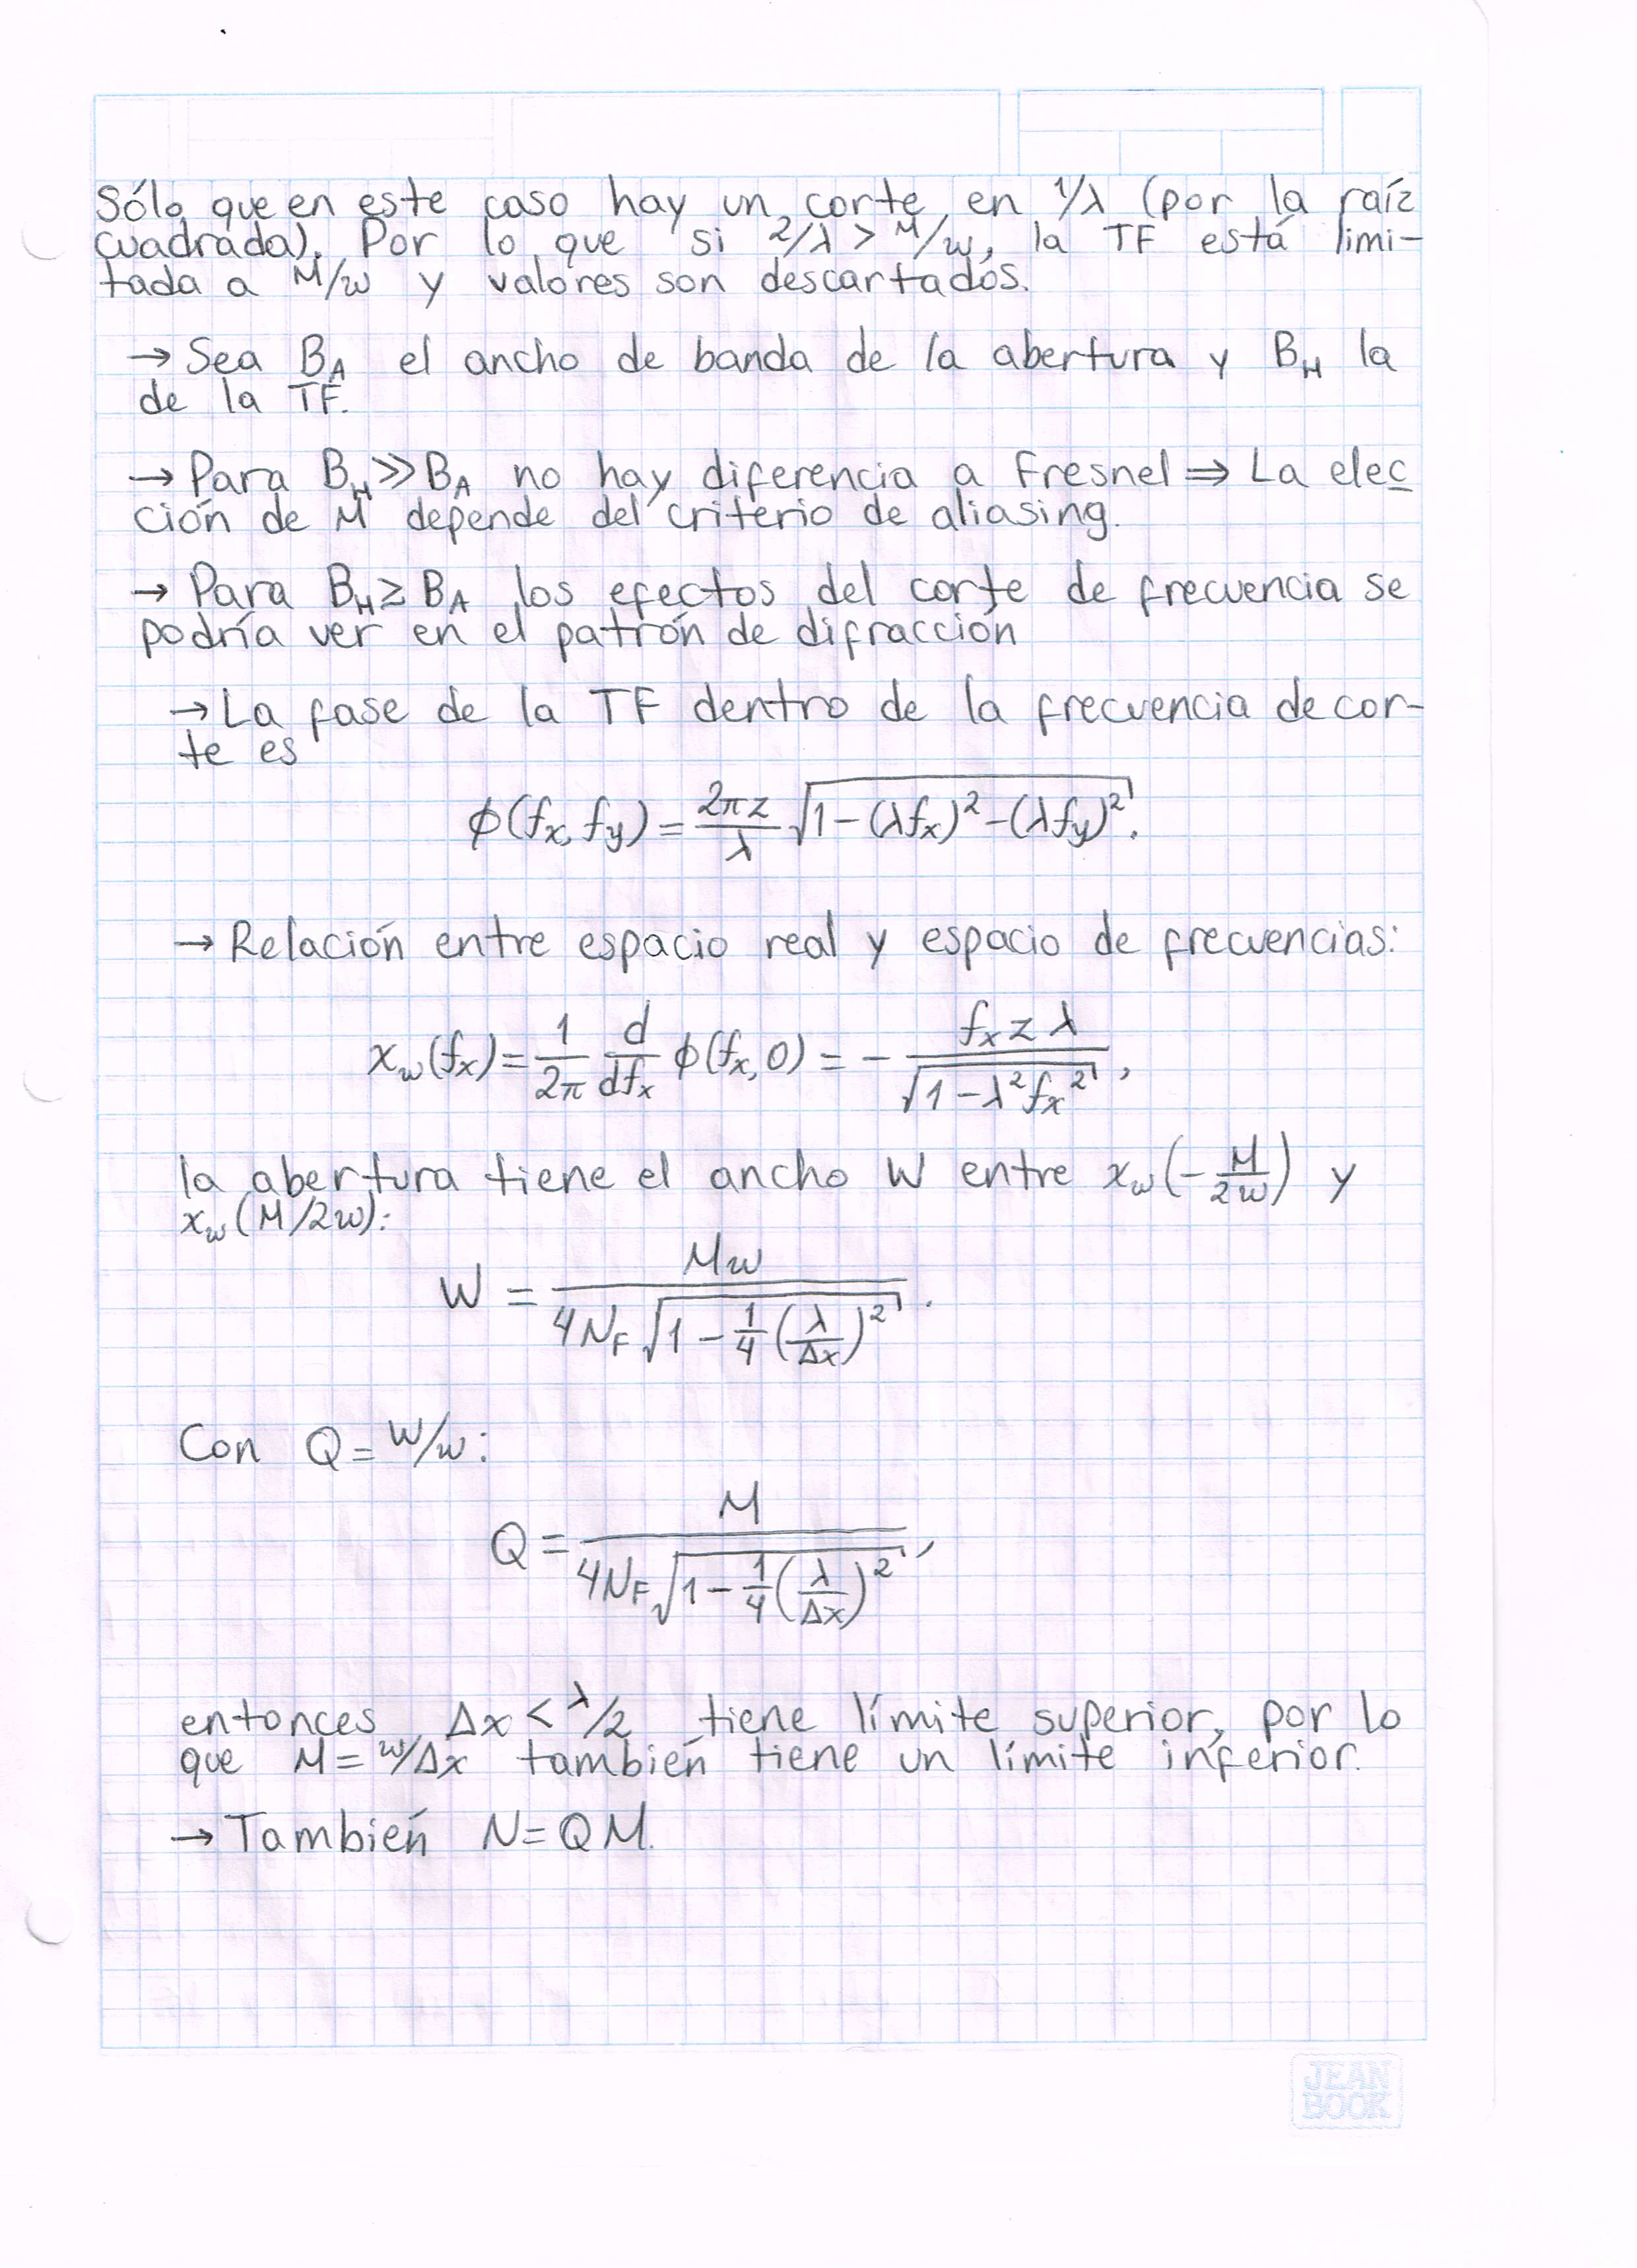 Sólo que en este caso hay un corte en 1/λ (por la raíz
cuadrada). Por lo que si 2/λ > M/w, la TF está limi-
tada a M/w y valores son descartados.
→ Sea B_A el ancho de banda de la abertura y B_H la
de la TF.
→ Para B_H ≫ B_A no hay diferencia a Fresnel ⇒ La elec
ción de M depende del criterio de aliasing.
→ Para B_H ≥ B_A los efectos del corte de frecuencia se
podría ver en el patrón de difracción
→ La fase de la TF dentro de la frecuencia de cor-
te es
φ(f_x, f_y) = 2πz/λ √(1-(λf_x)²-(λf_y)²).
→ Relación entre espacio real y espacio de frecuencias:
x_w(f_x) = 1/2π d/df_x φ(f_x, 0) = - f_x z λ/√(1-λ²f_x²),
la abertura tiene el ancho W entre x_w(-M/2w) y
x_w(M/2w):
W = Mw/(4N_F √(1-1/4(λ/Δx)²)).
Con Q = W/w:
Q = M/(4N_F √(1-1/4(λ/Δx)²)),
entonces Δx < λ/2 tiene límite superior, por lo
que M = w/Δx también tiene un límite inferior.
→ También N = QM.
JEAN
BOOK